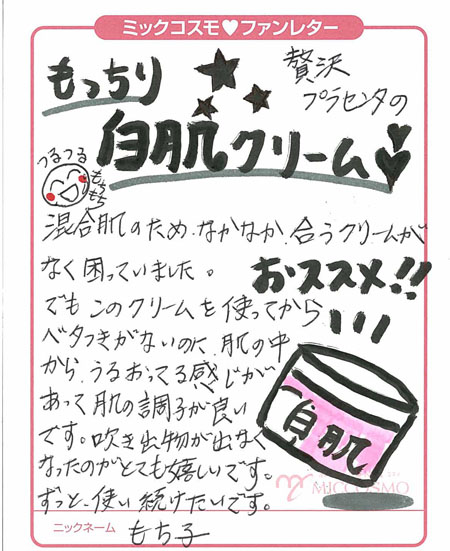 ミックコスモ♥ファンレター
贅沢
プラセンタの
もっちり
白肌クリーム
つるつる
もちもち
混合肌のため、なかなか、合うクリームが
なく困っていました。
おススメ!!
でもこのクリームを使ってから
ベタつきがないのに、肌の中
から、うるおってる感じが
あって肌の調子が良い
です。吹き出物が出なく
なったのがとても嬉しいです。
ずっと、使い続けたいです。
白肌
MICCOSMO
ニックネーム もち子